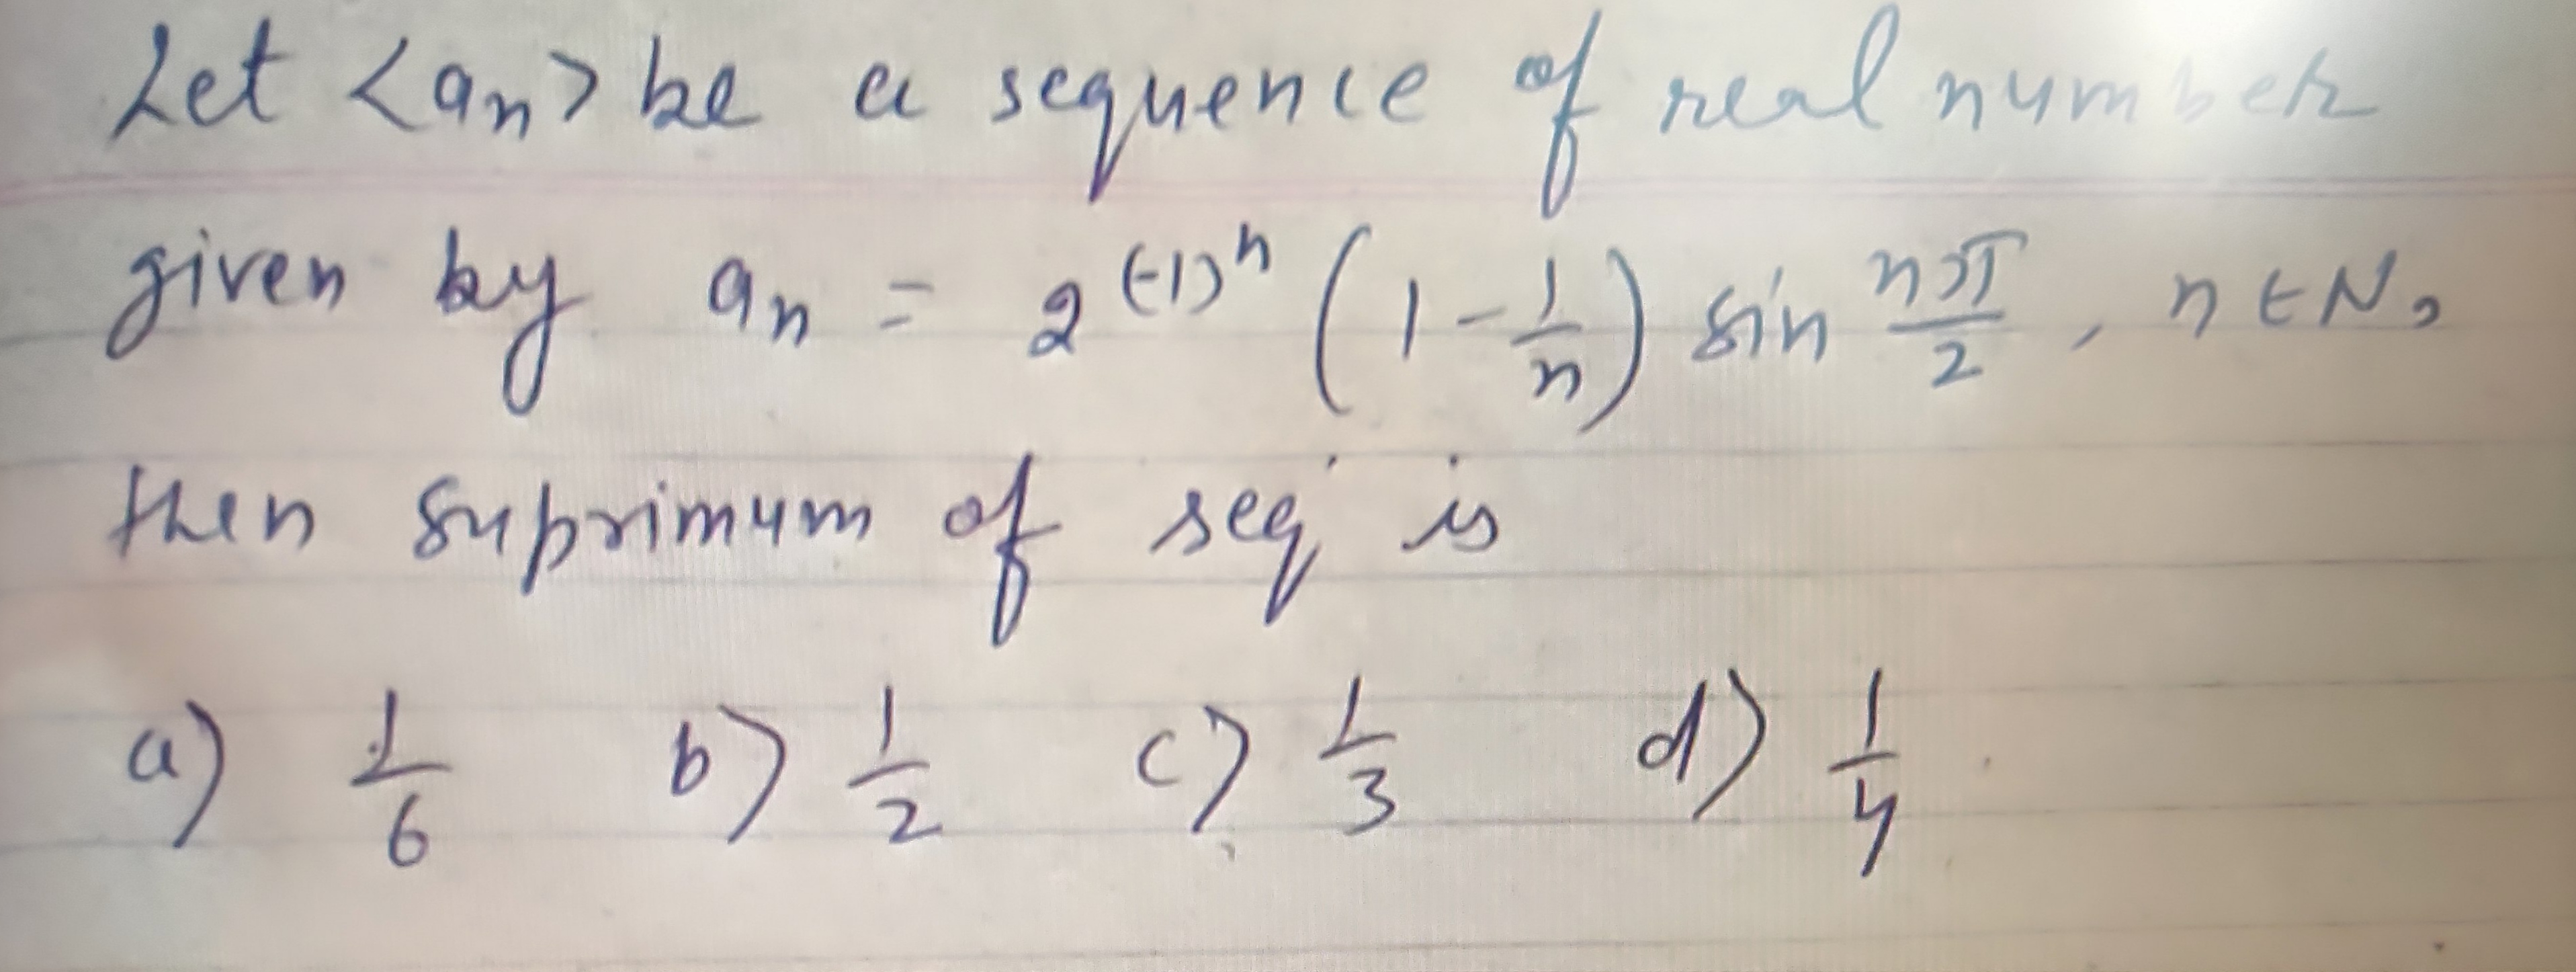 Let <aₙ> be a sequence of real number
given by aₙ = 2^(-1)^n (1 - 1/n) sin nπ/2, n ∈ N,
then suprimum of seq is
a) 1/6 b) 1/2 c) 1/3 d) 1/4